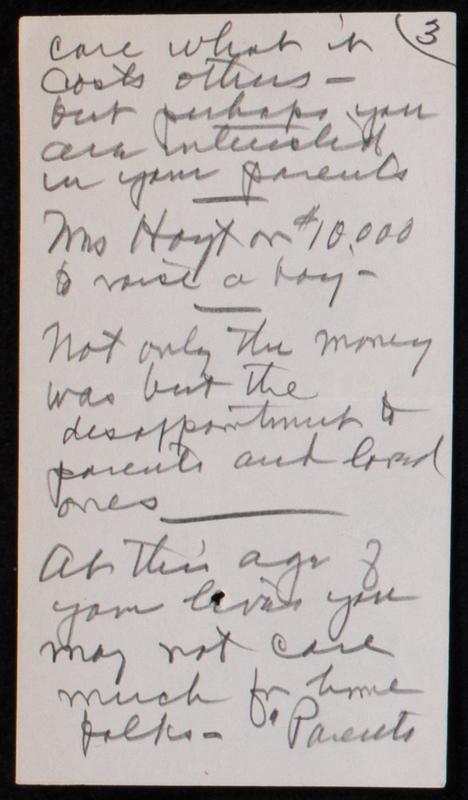 3
care what it
costs others —
but perhaps you
are interested
in your parents
Mrs Hoyt on $10,000
to raise a boy —
Not only the money
was but the
disappointment to
parents and loved
ones
At this age of
your lives you
may not care
much for home
folks — Parents